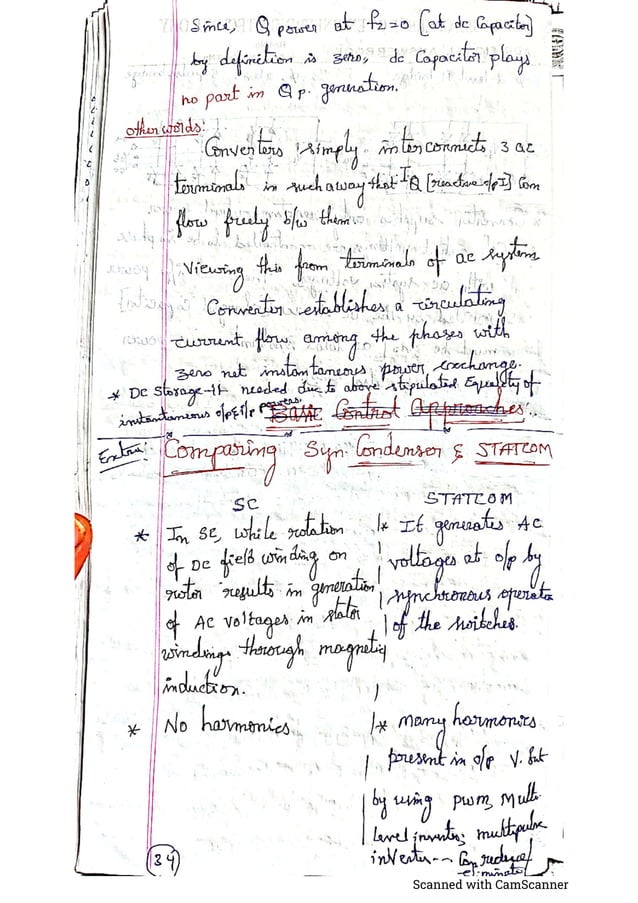 Since, Q power at f2=0 [at dc Capacitor]
by definition is zero, dc Capacitor plays
no part in Q p. generation.
other words:
Converters simply interconnects 3 ac
terminals in such away that IQ [reactive o/p I] Can
flow freely b/w them
Viewing this from terminals of ac system
Converter establishes a circulating
current flow among the phases with
zero net instantaneous power exchange.
* DC Storage - It needed due to above stipulated Equality of
instantaneous o/p & i/p powers.
Basic Control Approaches.
Extra: Comparing Syn. Condensor & STATCOM
SC
* In SC, while rotation
of DC field winding on
rotor results in generation
of AC voltages in stator
windings thorough magnetic
induction.
* No harmonics
STATCOM
* It generates AC
voltages at o/p by
synchronous operatn
of the switches.
* many harmonics
present in o/p V. but
by using PWM, Multi
Level inverter, multipulse
inverter -- Can reduce/
eliminate
34
Scanned with CamScanner